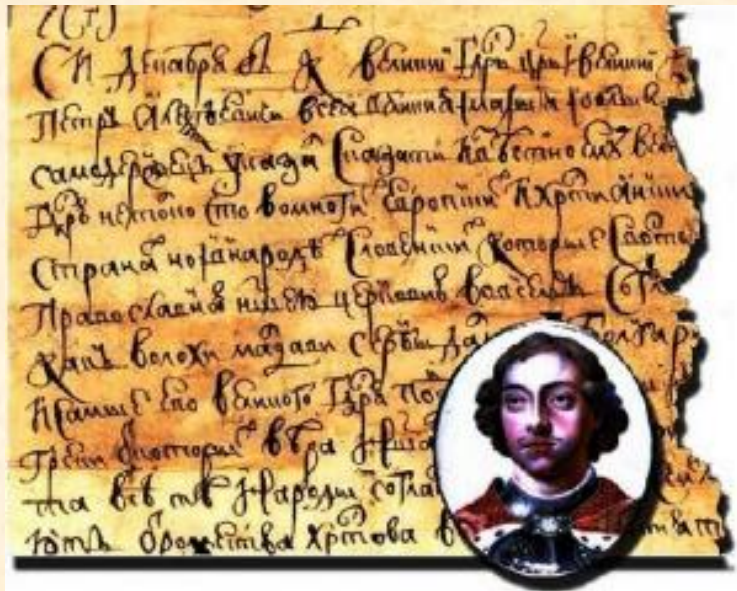 Декабря великий гдрь црь и великий
Петръ Алеѯѣевичь всеа великия и малыя и бѣлыя
самодержецъ указа сказати извѣстно емꙋ вел
гдрю не толко что во многи европски хрстиянски
страна но и в народѣ словенски которые с восто
православною нашею церковию во всемъ согла
какъ волохи молдави сербы дал болгари
и самые его великого гдря по
греки о которы вѣра наша
та всѣ тѣ народы согла
ютъ о рожества хрстова в